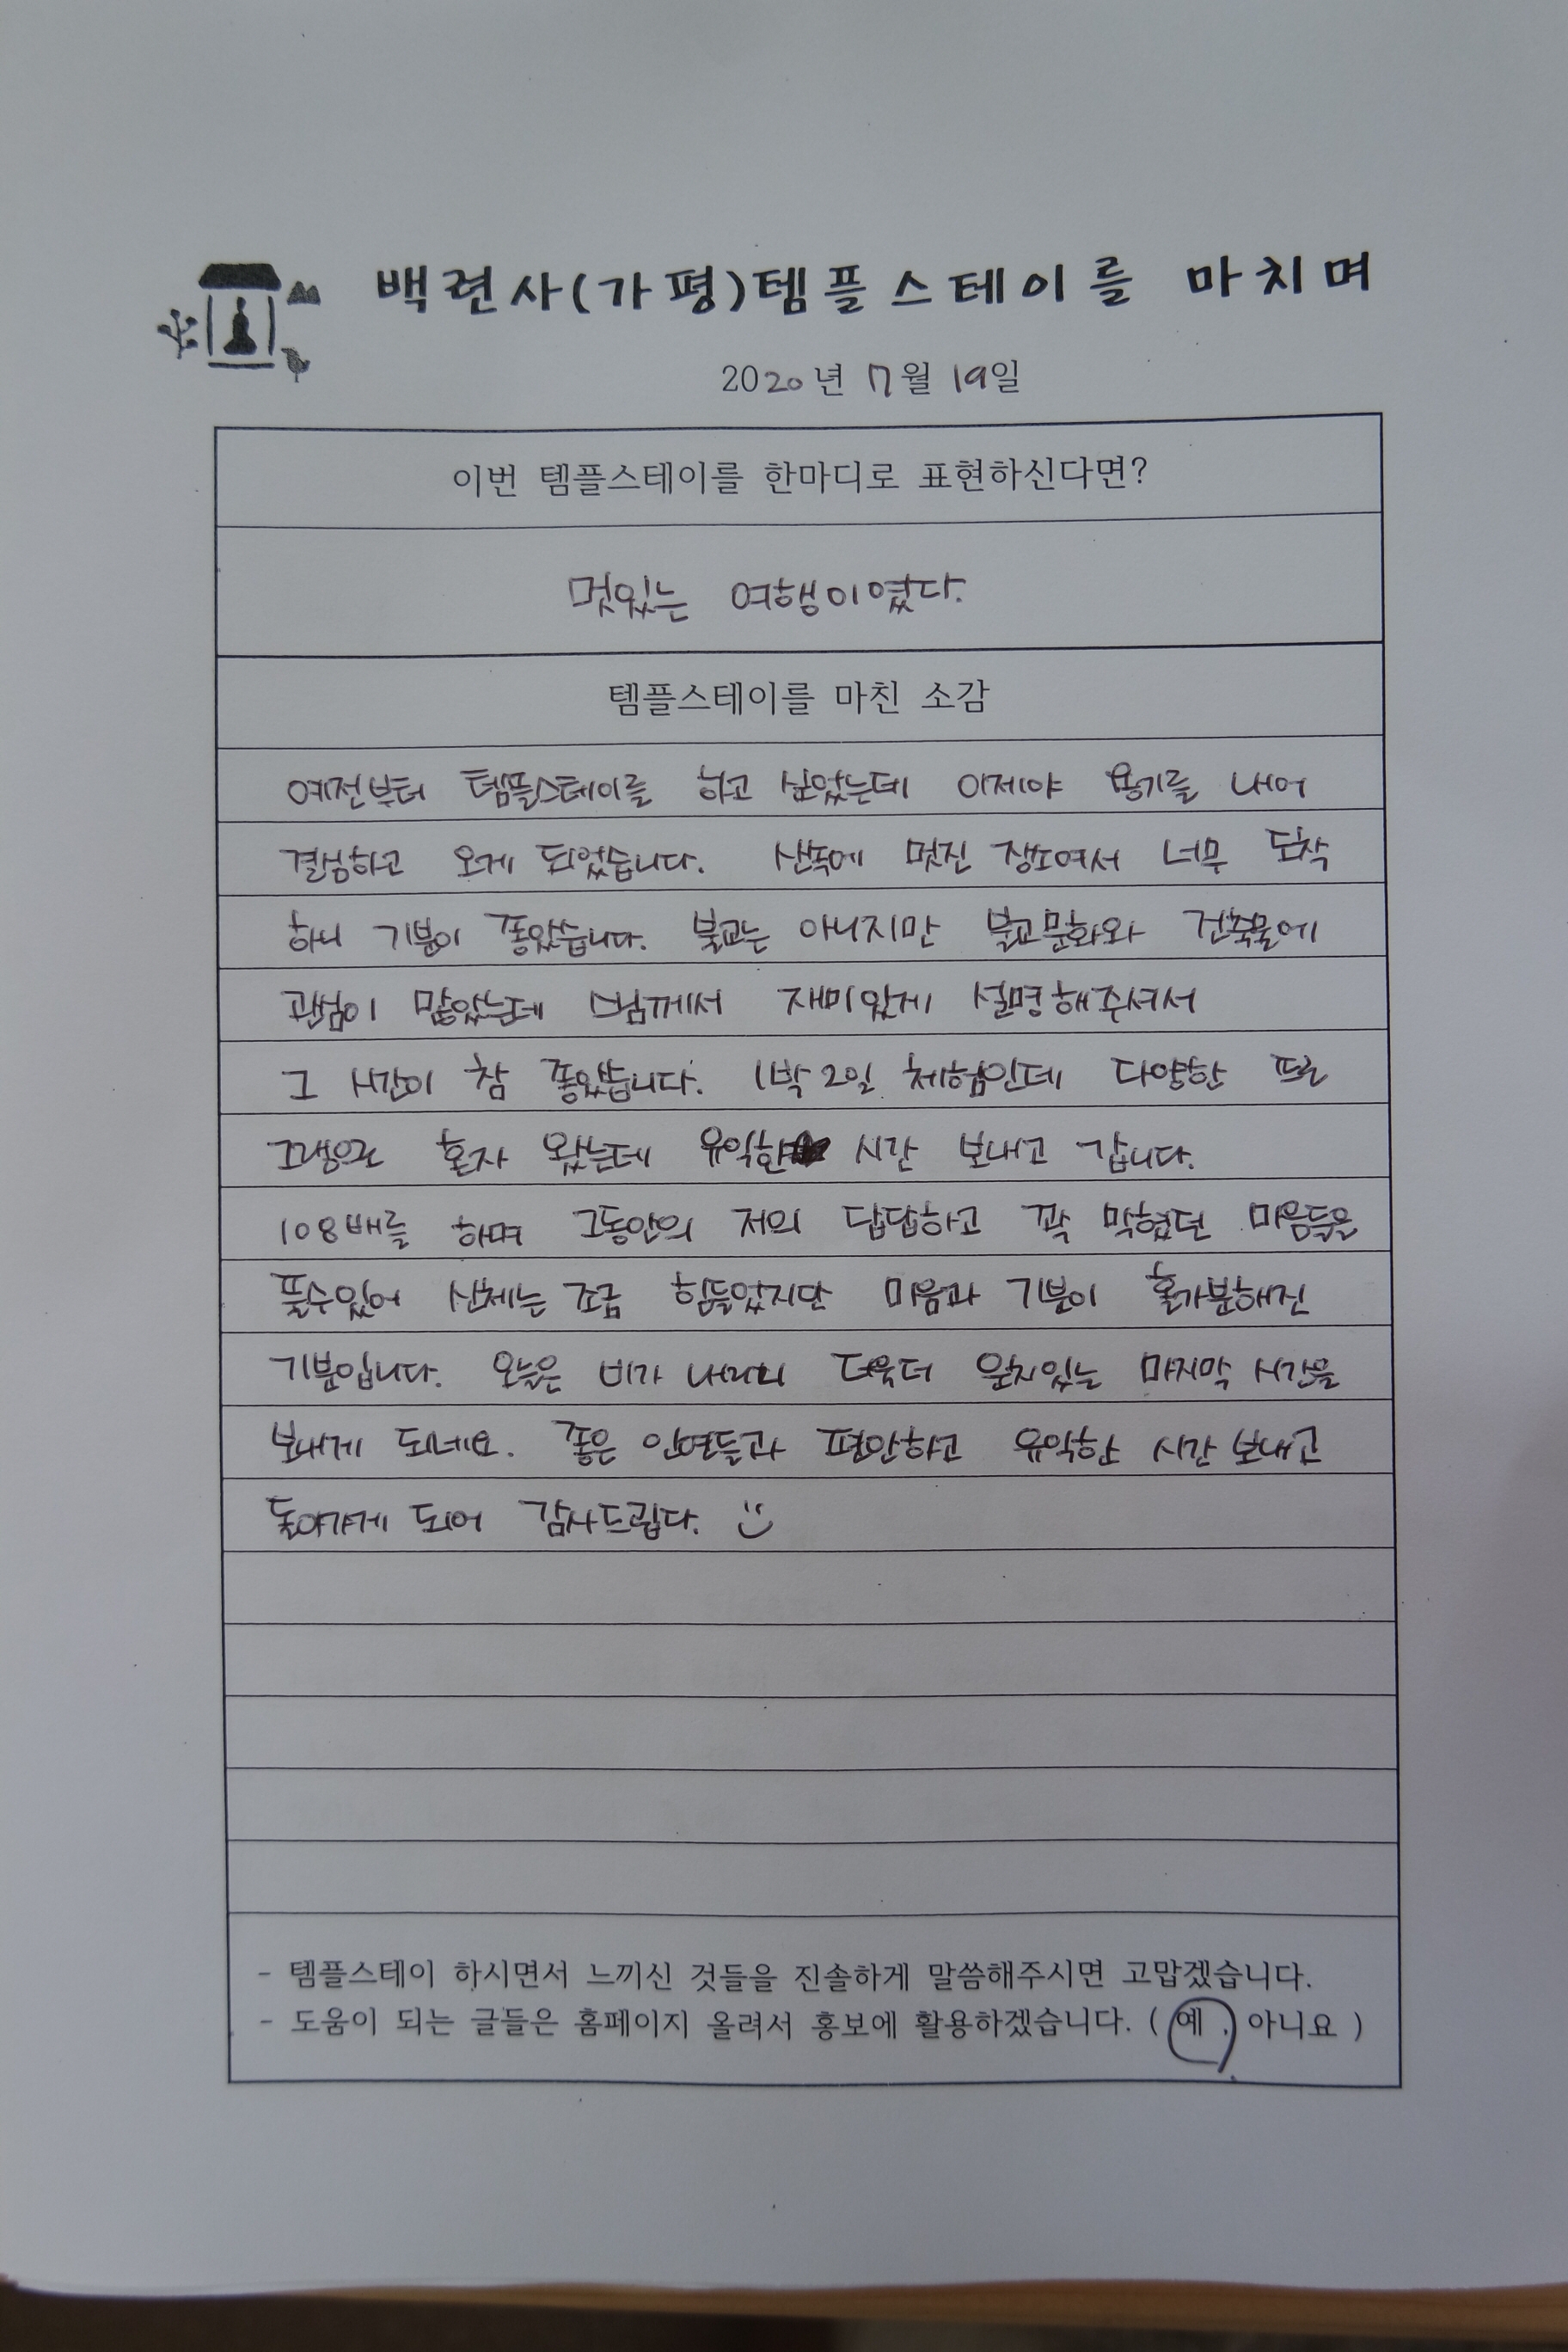 백련사(가평)템플스테이를 마치며
2020년 7월 19일
이번 템플스테이를 한마디로 표현하신다면?
멋있는 여행이였다.
템플스테이를 마친 소감
예전부터 템플스테이를 하고 싶었는데 이제야 용기를 내어
결심하고 오게 되었습니다. 산속에 멋진 장소여서 너무 도착
하니 기분이 좋았습니다. 불교는 아니지만 불교문화와 건축물에
관심이 많았는데 스님께서 재미있게 설명해주셔서
그 시간이 참 좋았습니다. 1박2일 체험인데 다양한 프로
그램으로 혼자 왔는데 유익한 시간 보내고 갑니다.
108배를 하며 그동안의 저의 답답하고 꽉 막혔던 마음들을
풀수있어 신체는 조금 힘들었지만 마음과 기분이 홀가분해진
기분입니다. 오늘은 비가 내리니 더욱더 운치있는 마지막 시간을
보내게 되네요. 좋은 인연들과 편안하고 유익한 시간 보내고
돌아가게 되어 감사드립다. :)
- 템플스테이 하시면서 느끼신 것들을 진솔하게 말씀해주시면 고맙겠습니다.
- 도움이 되는 글들은 홈페이지 올려서 홍보에 활용하겠습니다. ( 예 , 아니요 )